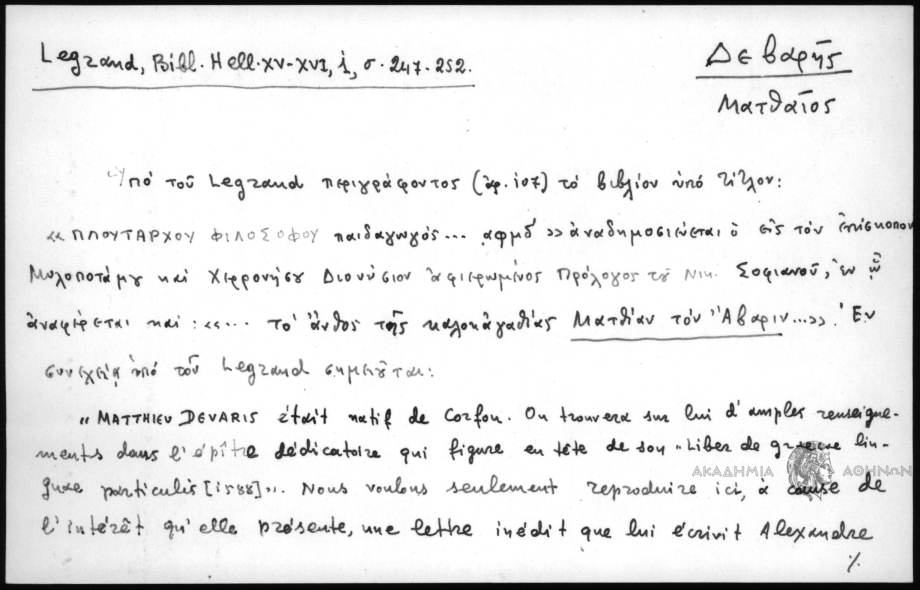 Legrand, Bibl. Hell. XV-XVI, i, σ. 247-252.
Δεβαρῆς
Ματθαῖος
Ὑπό τοῦ Legrand περιγράφοντος (ἀρ. 107) τό βιβλίον ὑπό τίτλον:
«ΠΛΟΥΤΑΡΧΟΥ ΦΙΛΟΣΟΦΟΥ παιδαγωγός... αφμδ» ἀναδημοσιεύεται ὁ εἰς τόν ἐπίσκοπον
Μυλοποτάμου καί Χερρονήσου Διονύσιον ἀφιερωμένος Πρόλογος τοῦ Νικ. Σοφιανοῦ, ἐν ᾧ
ἀναφέρεται καί: «... τό ἄνθος τῆς καλοκἀγαθίας Ματθίαν τόν Ἄβαριν...». Ἐν
συνεχείᾳ ὑπό τοῦ Legrand σημειοῦται:
„MATTHIEU DEVARIS était natif de Corfou. On trouvera sur lui d'amples renseigne-
ments dans l'épître dédicatoire qui figure en tête de son „Liber de graecae lin-
guae particulis [1588]". Nous voulons seulement reproduire ici, à cause de
l'intérêt qu'elle présente, une lettre inédit que lui écrivit Alexandre
./.
ΑΚΑΔΗΜΙΑ ΑΘΗΝΩΝ